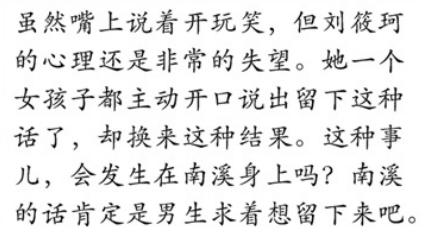 虽然嘴上说着开玩笑，但刘筱珂
的心理还是非常的失望。她一个
女孩子都主动开口说出留下这种
话了，却换来这种结果。这种事
儿，会发生在南溪身上吗？南溪
的话肯定是男生求着想留下来吧。